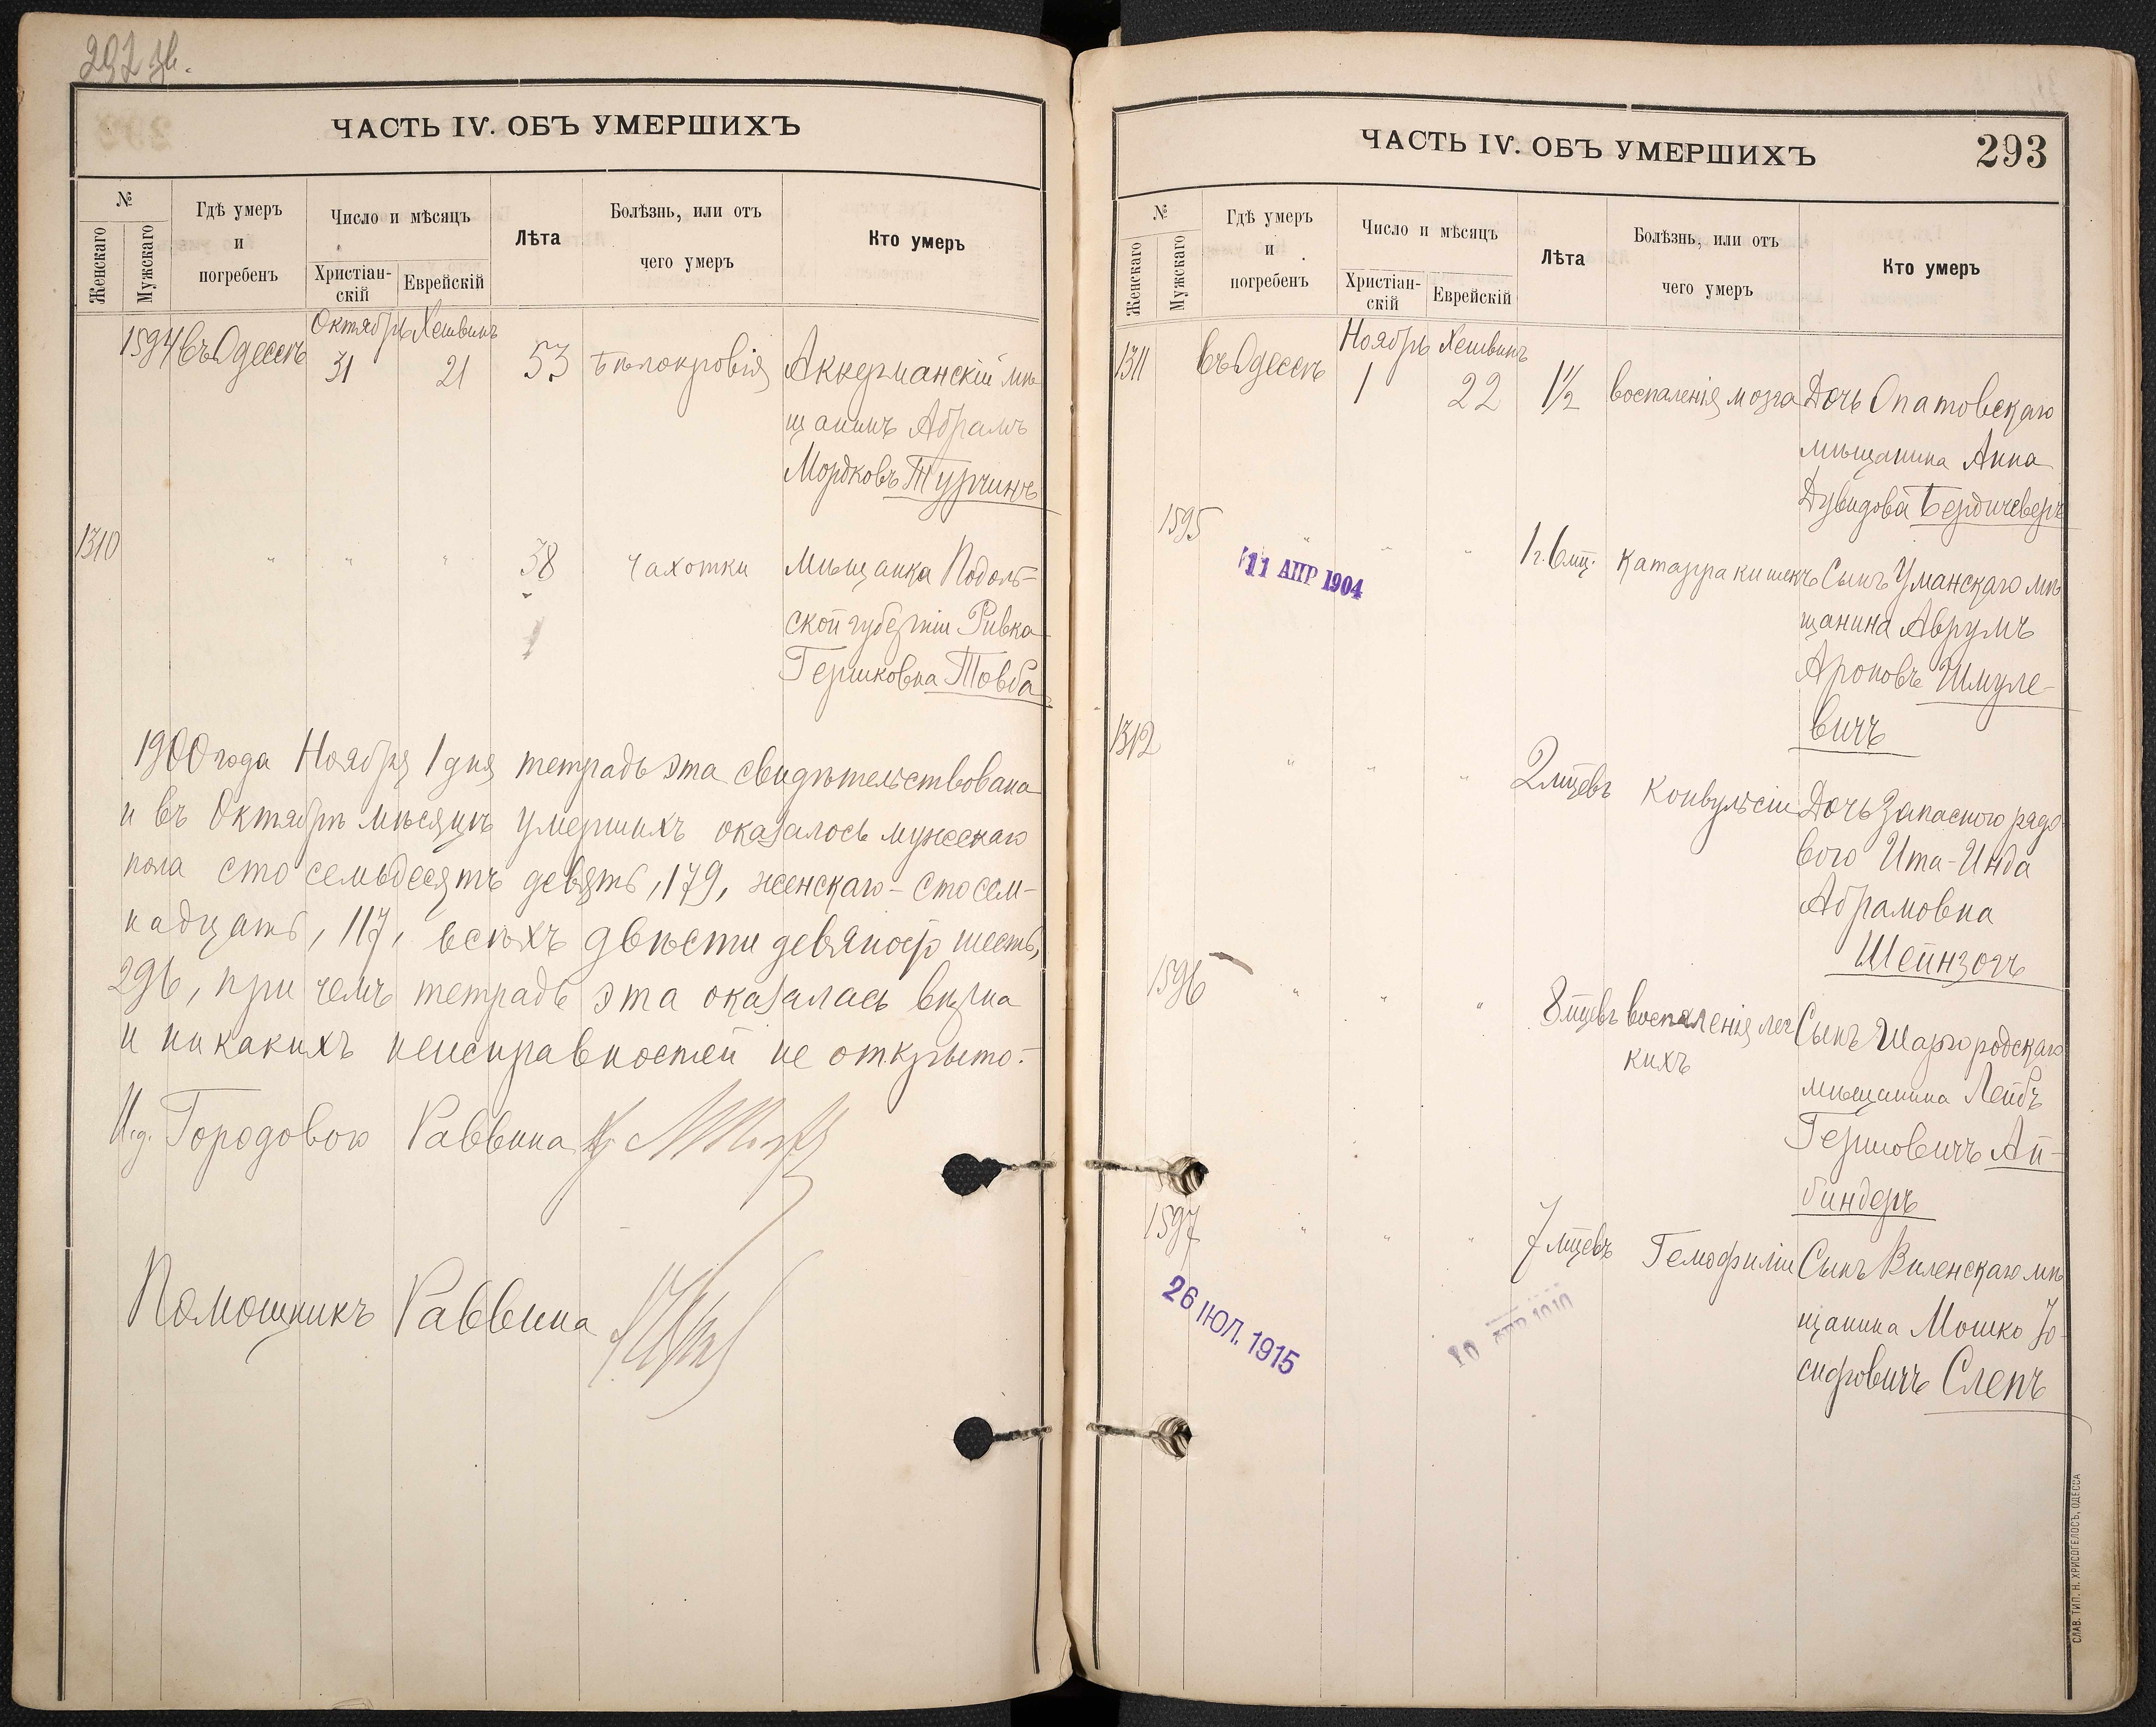 292 зв.
ЧАСТЬ IV. ОБЪ УМЕРШИХЪ
№
Женскаго
Мужскаго
Гдѣ умеръ
и
погребенъ
Число и мѣсяцъ
Христіан-
скій
Еврейскій
Лѣта
Болѣзнь, или отъ
чего умеръ
Кто умеръ
Октябрь Хешвинъ
1594 Въ Одессѣ 31 21 53 Бѣлокровія Аккерманскій мѣ
щанинъ Абрамъ
Мордковъ Турчинъ
1310 " " " 38 Чахотки Мѣщанка Подоль-
ской губерніи Ривка
Гершковна Товба
1900 года Ноября 1 дня тетрадь эта свидѣтельствована
и въ Октябрѣ мѣсяцѣ умершихъ оказалось мужескаго
пола сто семьдесятъ девять, 179, женскаго - сто сем-
надцать, 117, всѣхъ двѣсти девяносто шесть,
296, при чемъ тетрадь эта оказалась вѣрна
и никакихъ неисправностей не открыто.
И.д. Городового Раввина
Помощникъ Раввина
ЧАСТЬ IV. ОБЪ УМЕРШИХЪ
293
№
Женскаго
Мужскаго
Гдѣ умеръ
и
погребенъ
Число и мѣсяцъ
Христіан-
скій
Еврейскій
Лѣта
Болѣзнь, или отъ
чего умеръ
Кто умеръ
Ноябрь Хешвинъ
1311 Въ Одессѣ 1 22 1½ Воспаленія мозга Дочь Опатовскаго
мѣщанина Анна
Дувидова Бердичеверъ
1595 " " " 1 г. 6 мц. Катарра кишекъ Сынъ Уманскаго мѣ
щанина Аврумъ
Ароновъ Шмуле-
вичъ
11 АПР 1904
1312 " " " 2 мцевъ Конвульсіи Дочь Запасного рядо-
вого Ита-Инда
Абрамовна
Шейнзонъ
1596 " " " 8 мцевъ Воспаленія лег Сынъ Шаргородскаго
кихъ
мѣщанина Лейбъ
Гершовичъ Ай-
биндеръ
1597 " " " 7 мцевъ Гемофиліи Сынъ Виленскаго мѣ
щанина Мошко Іо-
сифовичъ Слепъ
26 ІЮЛ. 1915
СЛАВ. ТИП. Н. ХРИСОГЕЛОСЪ, ОДЕССА